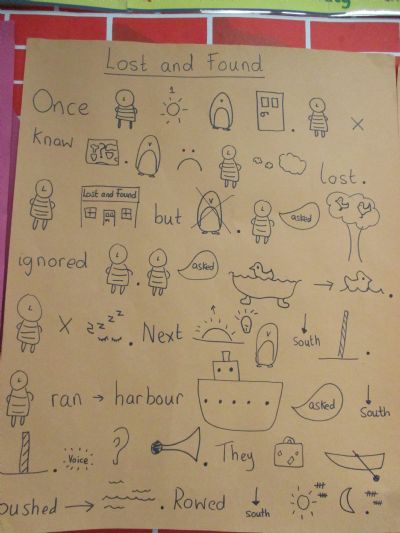 Lost and Found
Once 1 .
x
Know . lost.
Lost and Found but . asked
ignored . asked → .
x zzzz . Next south .
ran → harbour asked south
. Voice ? . They
pushed → . Rowed south